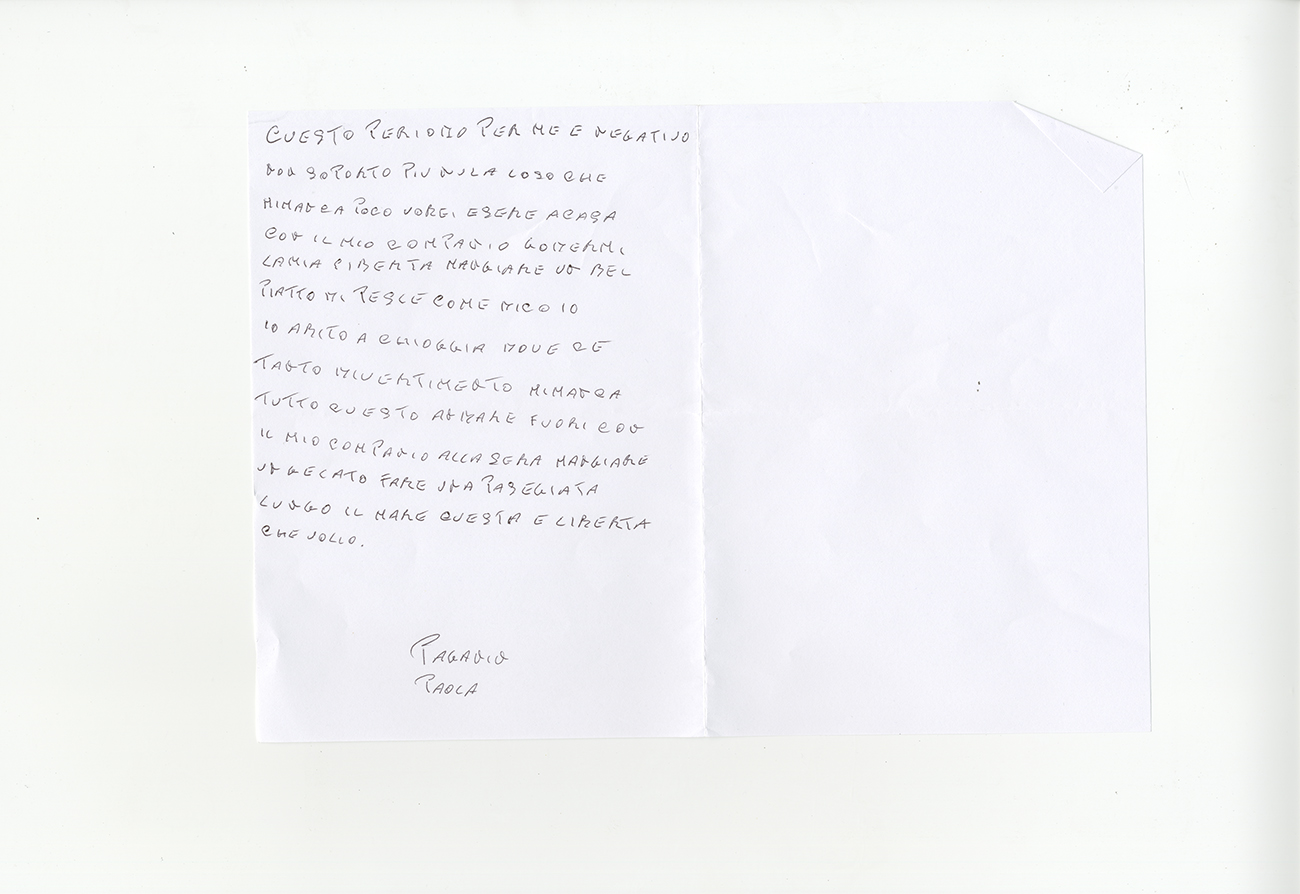 CUESTO PERIODO PER ME E NEGATIVO
NON SOPORTO PIU NULA LOSO CHE
MIMANCA POCO VOREI ESERE ACASA
CON IL MIO COMPANIO GODERMI
LAMIA LIBERTA MANGIARE UN BEL
PIATTO DI PESCE COME DICO IO
IO ABITO A CHIOGGIA DOVE CE
TANTO DIVERTIMENTO MIMANCA
TUTTO CUESTO ANDARE FUORI CON
IL MIO COMPANIO ALLA SERA MANGIARE
UN GELATO FARE UNA PASEGIATA
LUNGO IL MARE CUESTA E LIBERTA
CHE VOLIO.
PAGANIO
PAOLA